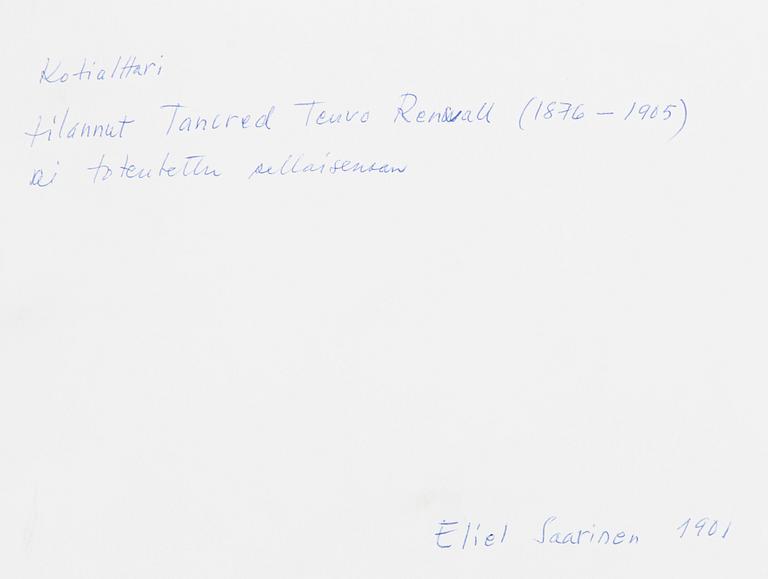 Kotialttari
tilannut Tancred Teuvo Renvall (1876 – 1905)
ei toteutettu sellaisenaan
Eliel Saarinen 1901